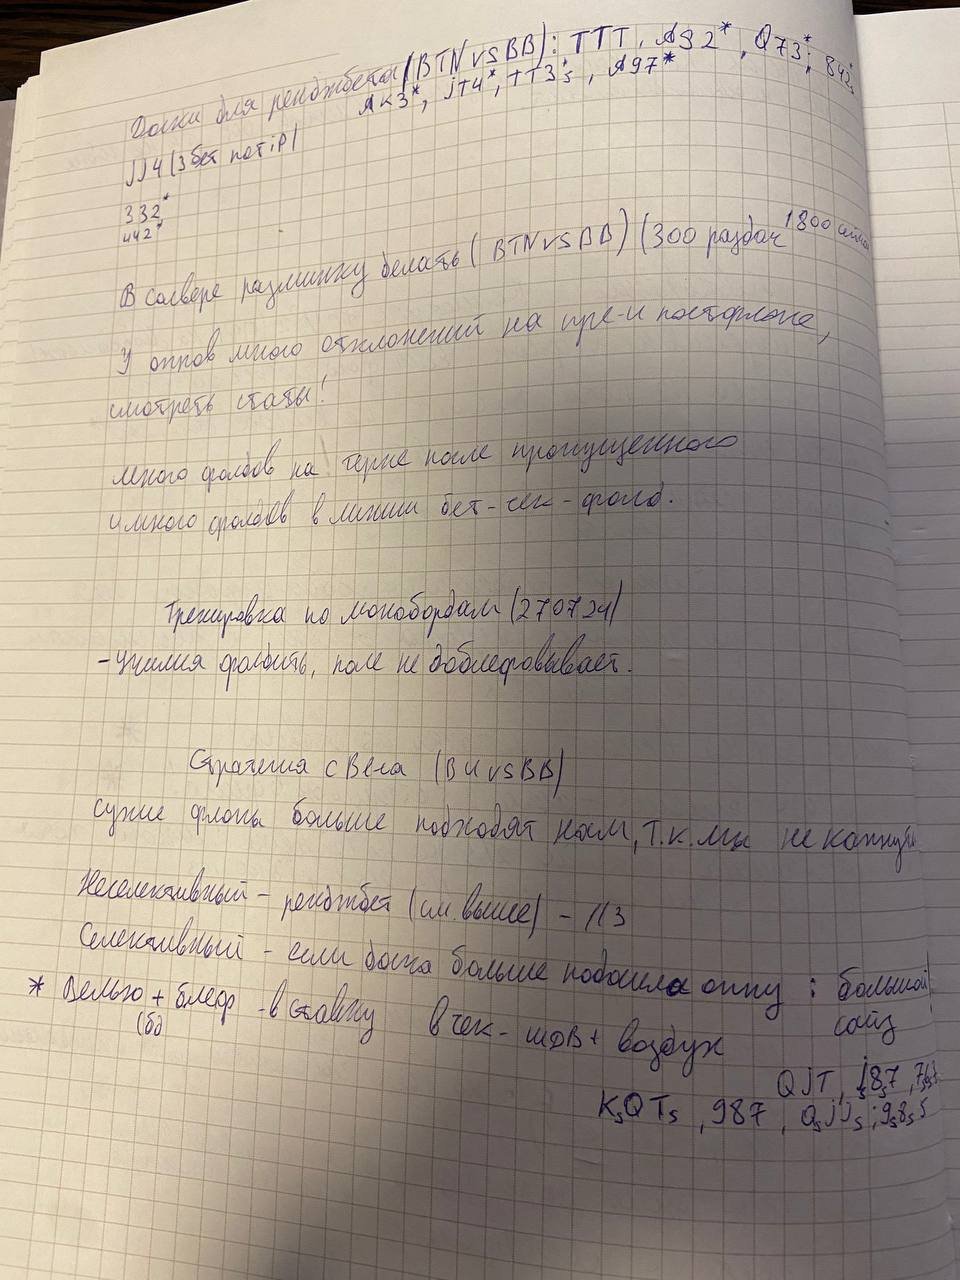 Доски для ренджбета (BTN vs BB): TTT, A92*, Q73*; 842s
AK3*, jT4*, TT3s, A97*
jj4 (3бет пот iP)
332*
442*
В солвере разминку делать (BTN vs BB) (300 раздач 1800
У оппов много отклонений на пре- и постфлопе,
смотреть статы!
много фолдов на терне после пропущенного
и много фолдов в линии бет-чек-фолд.
Тренировка по монобордам (270724)
- Учимся фолдить, поле не доблефовывает.
Стратегия с Вега (BU vs BB)
Сухие флопы больше подходят нам, т.к. мы не капнуты
Неселективный - ренджбет (см. выше) - 1/3
Селективный - если доска больше подошла оппу : большой
сайз
* Велью + блеф - в ставку в чек - шдв + воздух
(бд
QjT, js8s7,
KsQTs, 987, QsjJs; 9s8s5